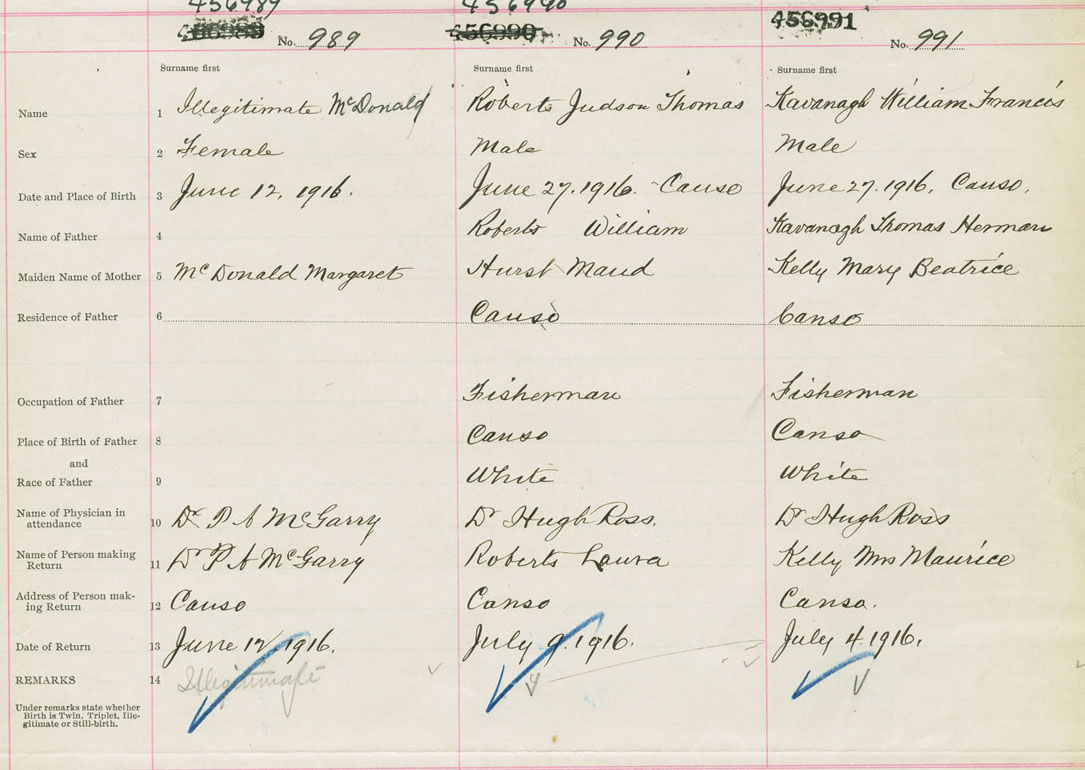 456989 456990
456989 No. 989 456990 No. 990 456991 No. 991
Surname first Surname first Surname first
Name 1 Illegitimate McDonald Roberts Judson Thomas Kavanagh William Francis
Sex 2 Female Male Male
Date and Place of Birth 3 June 12, 1916. June 27. 1916. Canso June 27. 1916. Canso.
Name of Father 4 Roberts William Kavanagh Thomas Herman
Maiden Name of Mother 5 McDonald Margaret Hurst Maud Kelly Mary Beatrice
Residence of Father 6 Canso Canso
Occupation of Father 7 Fisherman Fisherman
Place of Birth of Father 8 Canso Canso
and
Race of Father 9 White White
Name of Physician in
attendance 10 Dr P A McGarry Dr Hugh Ross. Dr Hugh Ross
Name of Person making
Return 11 Dr P A McGarry Roberts Laura Kelly Mrs Maurice
Address of Person mak-
ing Return 12 Canso Canso Canso.
Date of Return 13 June 12, 1916. July 9. 1916. July 4. 1916.
REMARKS 14 Illegitimate
Under remarks state whether
Birth is Twin. Triplet, Ille-
gitimate or Still-birth.